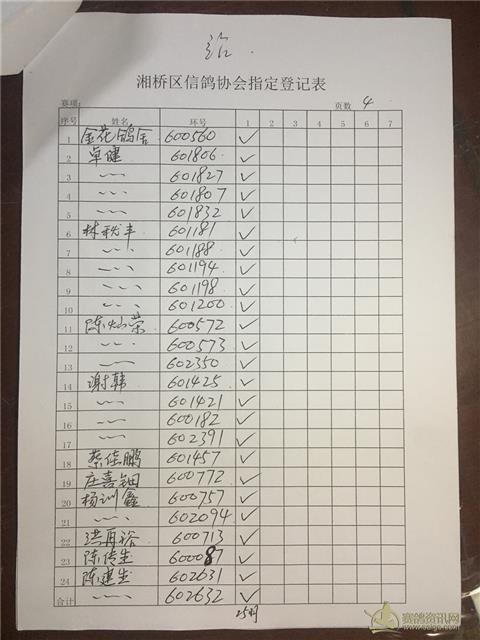 湘桥区信鸽协会指定登记表
赛项: 页数 4
序号 姓名 环号 1 2 3 4 5 6 7
1 金花鸽舍 600560 ✓
2 卓健 601806 ✓
3 〃 601827 ✓
4 〃 601807 ✓
5 〃 601832 ✓
6 林秋丰 601181 ✓
7 〃 601188 ✓
8 〃 601194 ✓
9 〃 601198 ✓
10 〃 601200 ✓
11 陈灿荣 600572 ✓
12 〃 600573 ✓
13 〃 602350 ✓
14 谢韩 601425 ✓
15 〃 601421 ✓
16 〃 600182 ✓
17 〃 602391 ✓
18 蔡佳鹏 601457 ✓
19 庄喜钿 600772 ✓
20 杨训鑫 600757 ✓
21 〃 602094 ✓
22 洪再裕 600713 ✓
23 陈传生 600087 ✓
24 陈建生 602631 ✓
合计 〃 602632 ✓
25羽
赛鸽资讯网